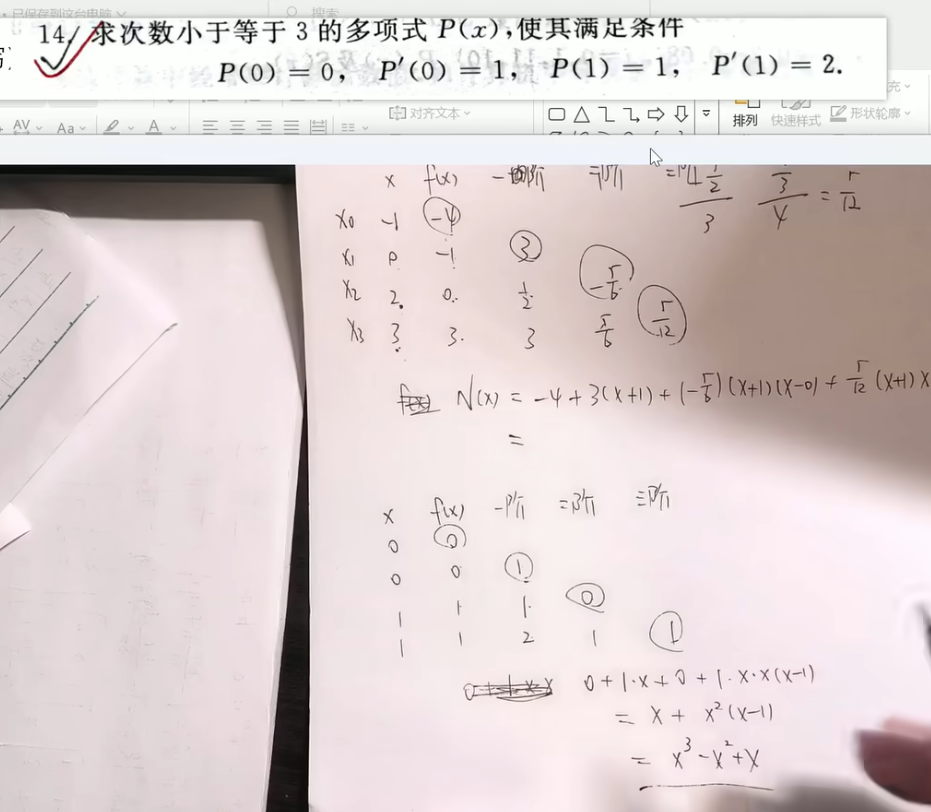 14. 求次数小于等于 3 的多项式 P(x),使其满足条件
P(0) = 0, P′(0) = 1, P(1) = 1, P′(1) = 2.
对齐文本
排列 快速样式 形状轮廓
x f(x)
x0 -1 -4
x1 0 -1 3
x2 2 0 1/2 -5/6
x3 3 3 3 5/6 5/12
N(x) = -4 + 3(x+1) + (-5/6)(x+1)(x-0) + 5/12 (x+1) x
=
x f(x) 一阶 二阶 三阶
0 0
0 0 1
1 1 1 0
1 1 2 1 1
0 + 1·x + 0 + 1·x·x(x-1)
= x + x²(x-1)
= x³ - x² + x